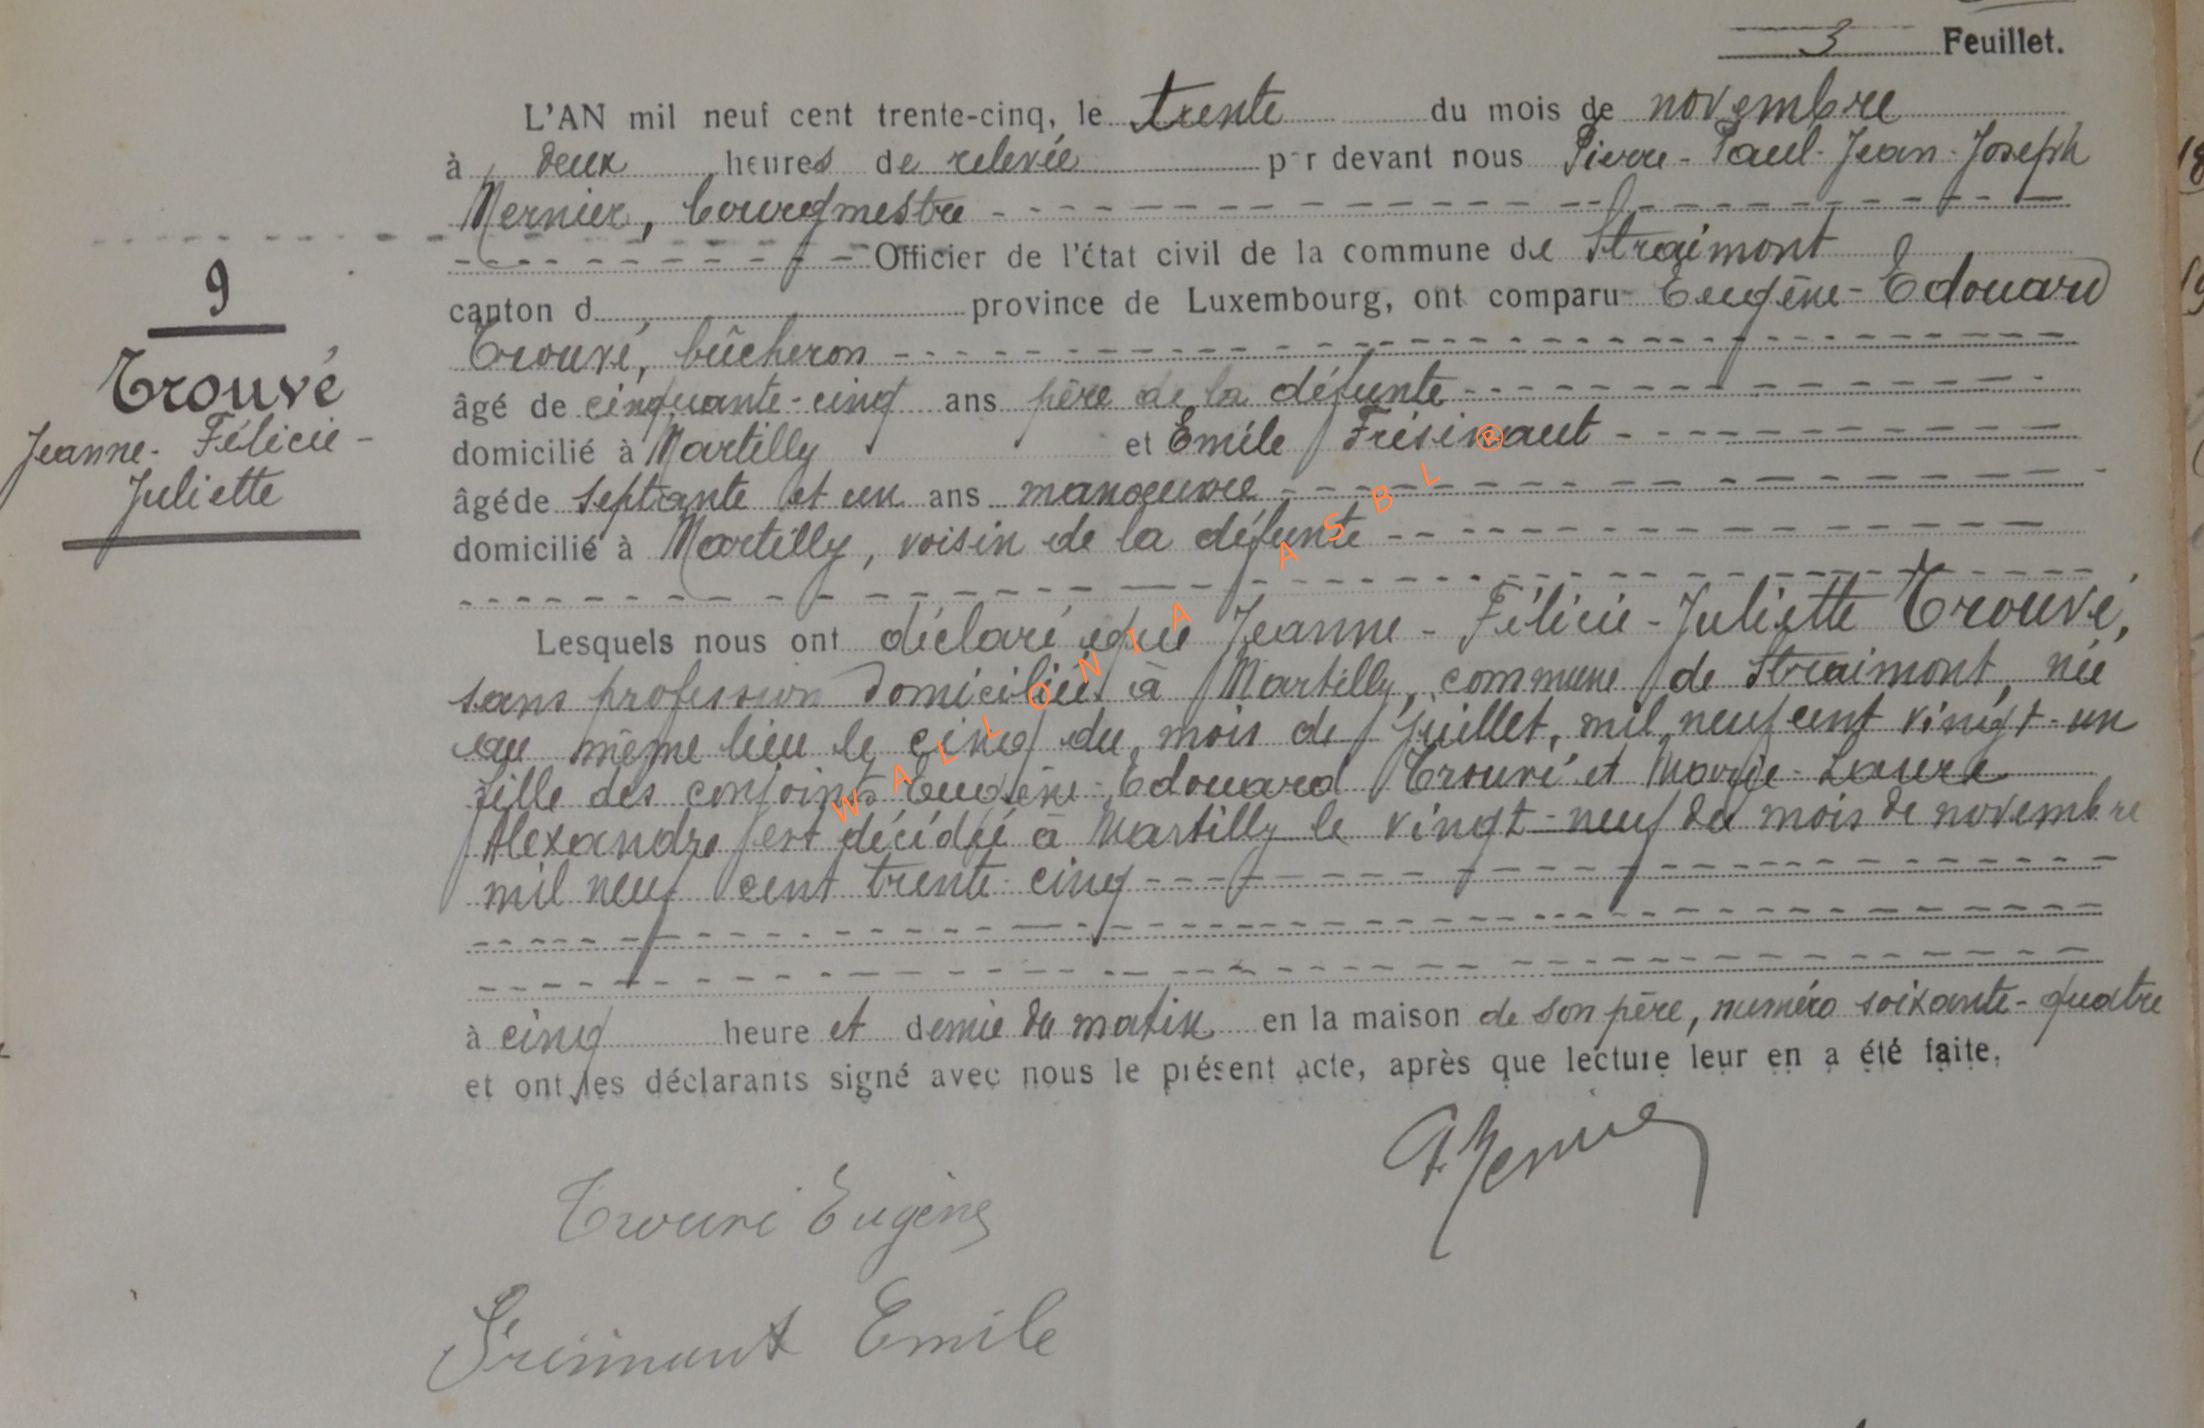 3 Feuillet.
L'AN mil neuf cent trente-cinq, le trente du mois de novembre
à deux heures de relevée par devant nous Pierre-Paul-Jean-Joseph
Mernier, bourgmestre
Officier de l'état civil de la commune de Straimont
canton d province de Luxembourg, ont comparu Eugène-Edouard
Trouvé, bûcheron
âgé de cinquante-cinq ans père de la défunte
domicilié à Martilly et Emile
âgé de septante et un ans manoeuvre
domicilié à Martilly, voisin de la défunte
9
Trouvé
Jeanne-Félicie-
Juliette
Lesquels nous ont déclaré que Jeanne-Félicie-Juliette Trouvé,
sans profession domiciliée à Martilly, commune de Straimont, née
au même lieu le cinq du mois de juillet, mil neuf cent vingt-un
fille des conjoints Eugène-Edouard Trouvé et Marie-Laure
Alexandre est décédée à Martilly le vingt-neuf du mois de novembre
mil neuf cent trente-cinq
à cinq heure et demie du matin en la maison de son père, numéro soixante-quatre
et ont les déclarants signé avec nous le présent acte, après que lecture leur en a été faite.
P. Mernier
Trouvé Eugène
Emile
WALLONIA ASBL ®